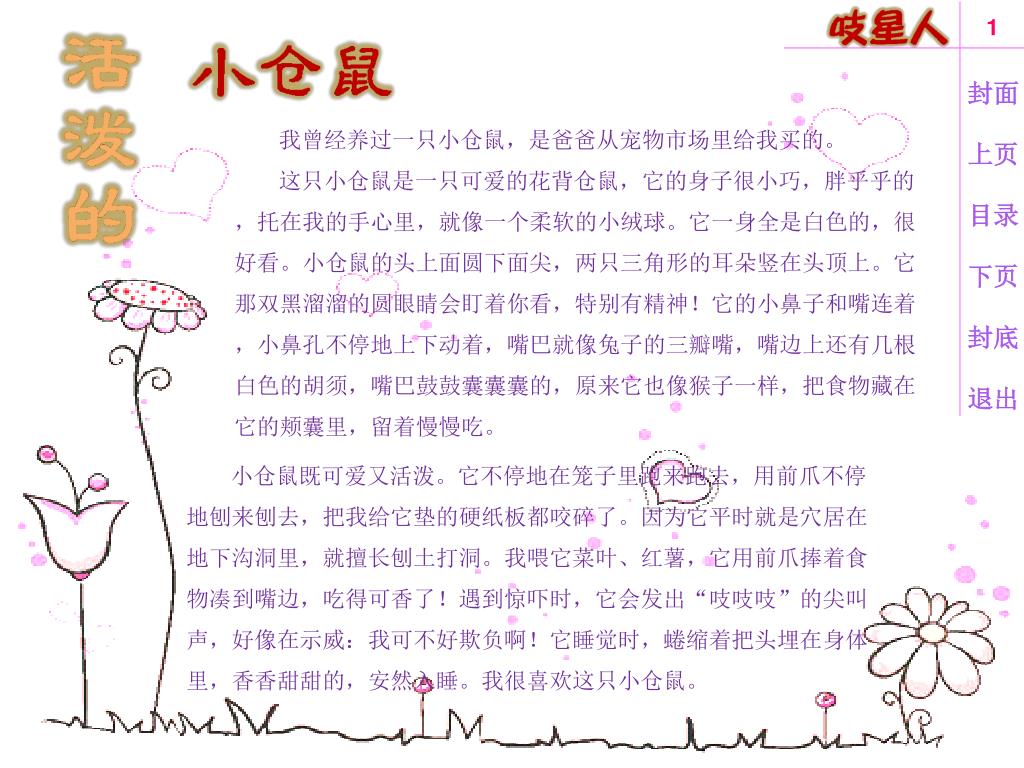 活泼的
小仓鼠
吱星人
1
封面
上页
目录
下页
封底
退出
我曾经养过一只小仓鼠，是爸爸从宠物市场里给我买的。
这只小仓鼠是一只可爱的花背仓鼠，它的身子很小巧，胖乎乎的
，托在我的手心里，就像一个柔软的小绒球。它一身全是白色的，很
好看。小仓鼠的头上面圆下面尖，两只三角形的耳朵竖在头顶上。它
那双黑溜溜的圆眼睛会盯着你看，特别有精神！它的小鼻子和嘴连着
，小鼻孔不停地上下动着，嘴巴就像兔子的三瓣嘴，嘴边上还有几根
白色的胡须，嘴巴鼓鼓囊囊囊的，原来它也像猴子一样，把食物藏在
它的颊囊里，留着慢慢吃。
小仓鼠既可爱又活泼。它不停地在笼子里跑来跑去，用前爪不停
地刨来刨去，把我给它垫的硬纸板都咬碎了。因为它平时就是穴居在
地下沟洞里，就擅长刨土打洞。我喂它菜叶、红薯，它用前爪捧着食
物凑到嘴边，吃得可香了！遇到惊吓时，它会发出“吱吱吱”的尖叫
声，好像在示威：我可不好欺负啊！它睡觉时，蜷缩着把头埋在身体
里，香香甜甜的，安然入睡。我很喜欢这只小仓鼠。